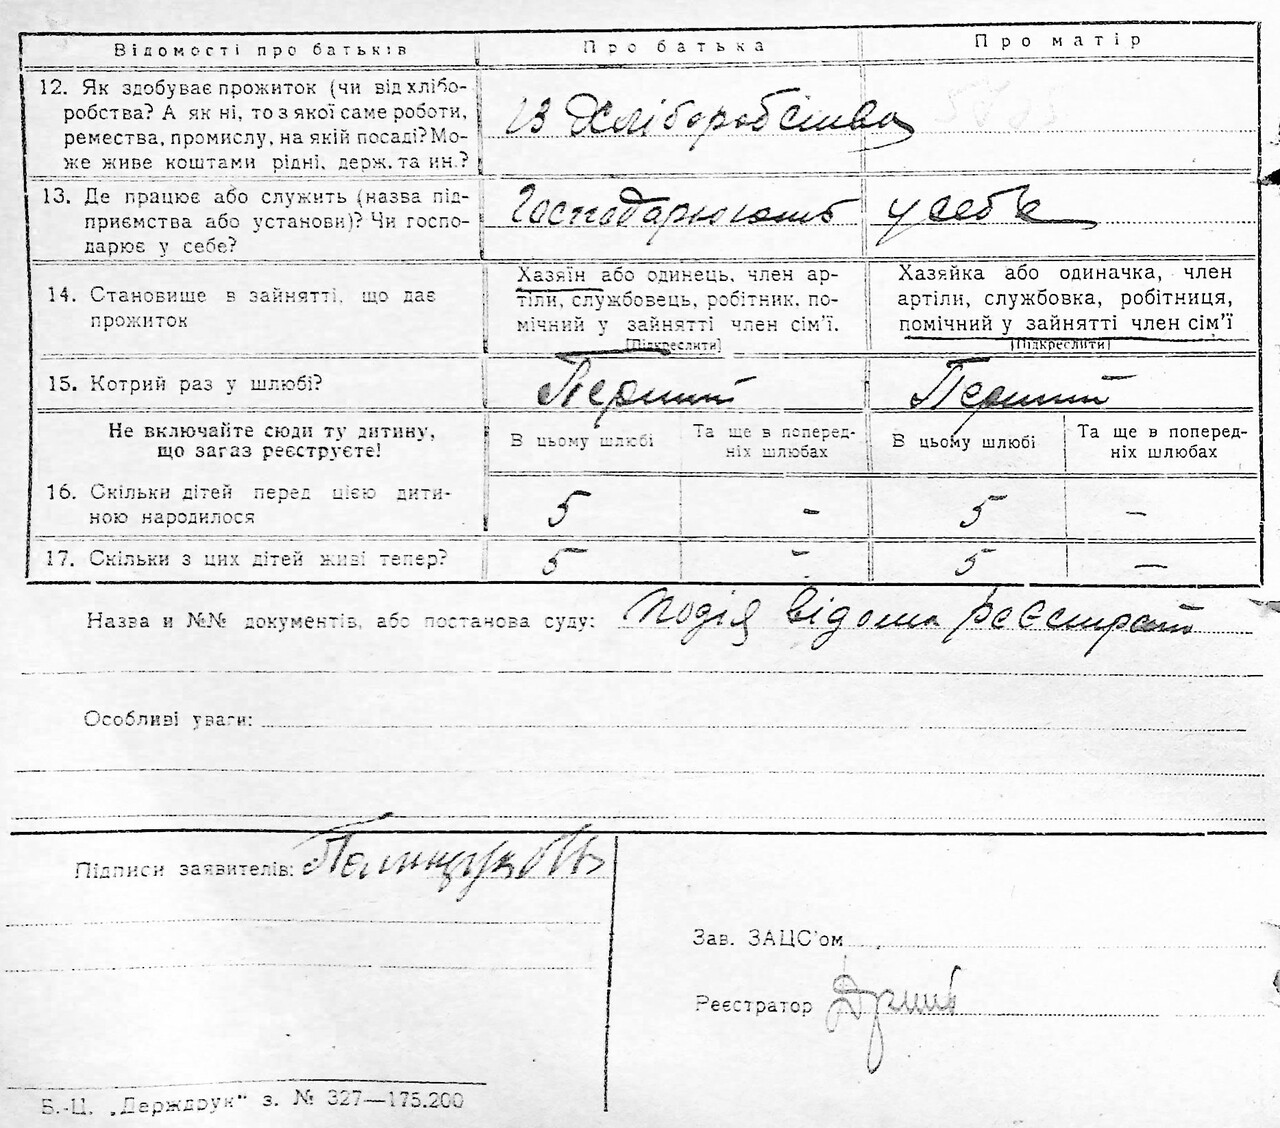 Відомості про батьків Про батька Про матір
12. Як здобуває прожиток (чи від хлібо-
робства? А як ні, то з якої саме роботи,
ремества, промислу, на якій посаді? Мо-
же живе коштами рідні, держ. та ин.?
Із Хліборобства
13. Де працює або служить (назва під-
приємства або установи)? Чи госпо-
дарює у себе?
Господарюють у себе
14. Становище в зайнятті, що дає
прожиток
Хазяїн або одинець, член ар-
тіли, службовець, робітник, по-
мічний у зайнятті член сім'ї.
[Підкреслити]
Хазяйка або одиначка, член
артіли, службовка, робітниця,
помічний у зайнятті член сім'ї
[Підкреслити]
15. Котрий раз у шлюбі? Перший Перший
Не включайте сюди ту дитину,
що загаз реєструєте!
В цьому шлюбі
Та ще в поперед-
ніх шлюбах
В цьому шлюбі
Та ще в поперед-
ніх шлюбах
16. Скільки дітей перед цією дити-
ною народилося
5 - 5 -
17. Скільки з цих дітей живі тепер? 5 - 5 -
Назва и №№ документів, або постанова суду: подія відома реєстрат
Особливі уваги:
Підписи заявителів:
Зав. ЗАЦС'ом
Реєстратор
Б.-Ц. „Держдрук" з. № 327—175.200